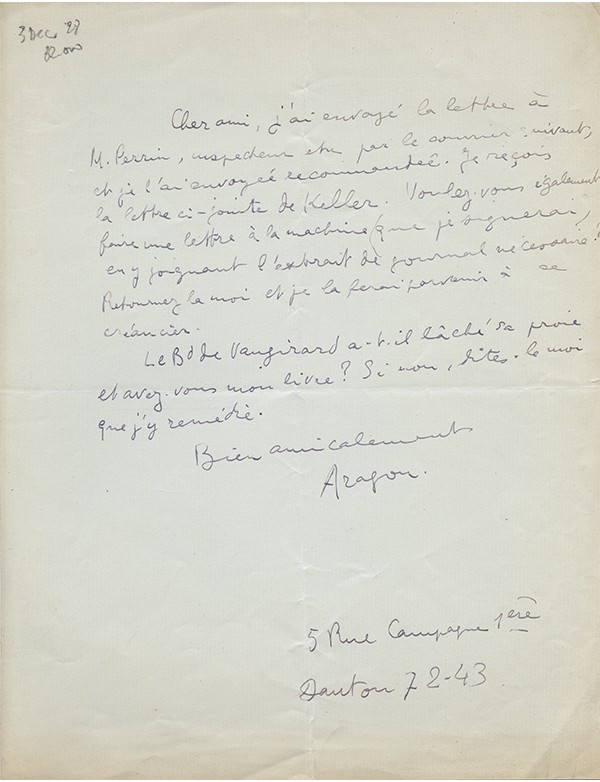 3 Dec 
Cher ami, j'ai envoyé la lettre à
M. Perrin, inspecteur etc par le courrier suivant,
et je l'ai envoyée recommandée. Je reçois
la lettre ci-jointe de Keller. Voulez-vous également
faire une lettre à la machine (que je signerai,
en y joignant l'extrait de journal nécessaire?
Retournez la moi et je la ferai parvenir à ce
créancier.
Le Bd de Vaugirard a-t-il lâché sa proie
et avez-vous mon livre? Si non, dites-le moi
que j'y remédie.
Bien amicalement
Aragon.
5 Rue Campagne 1ère
Danton 72-43